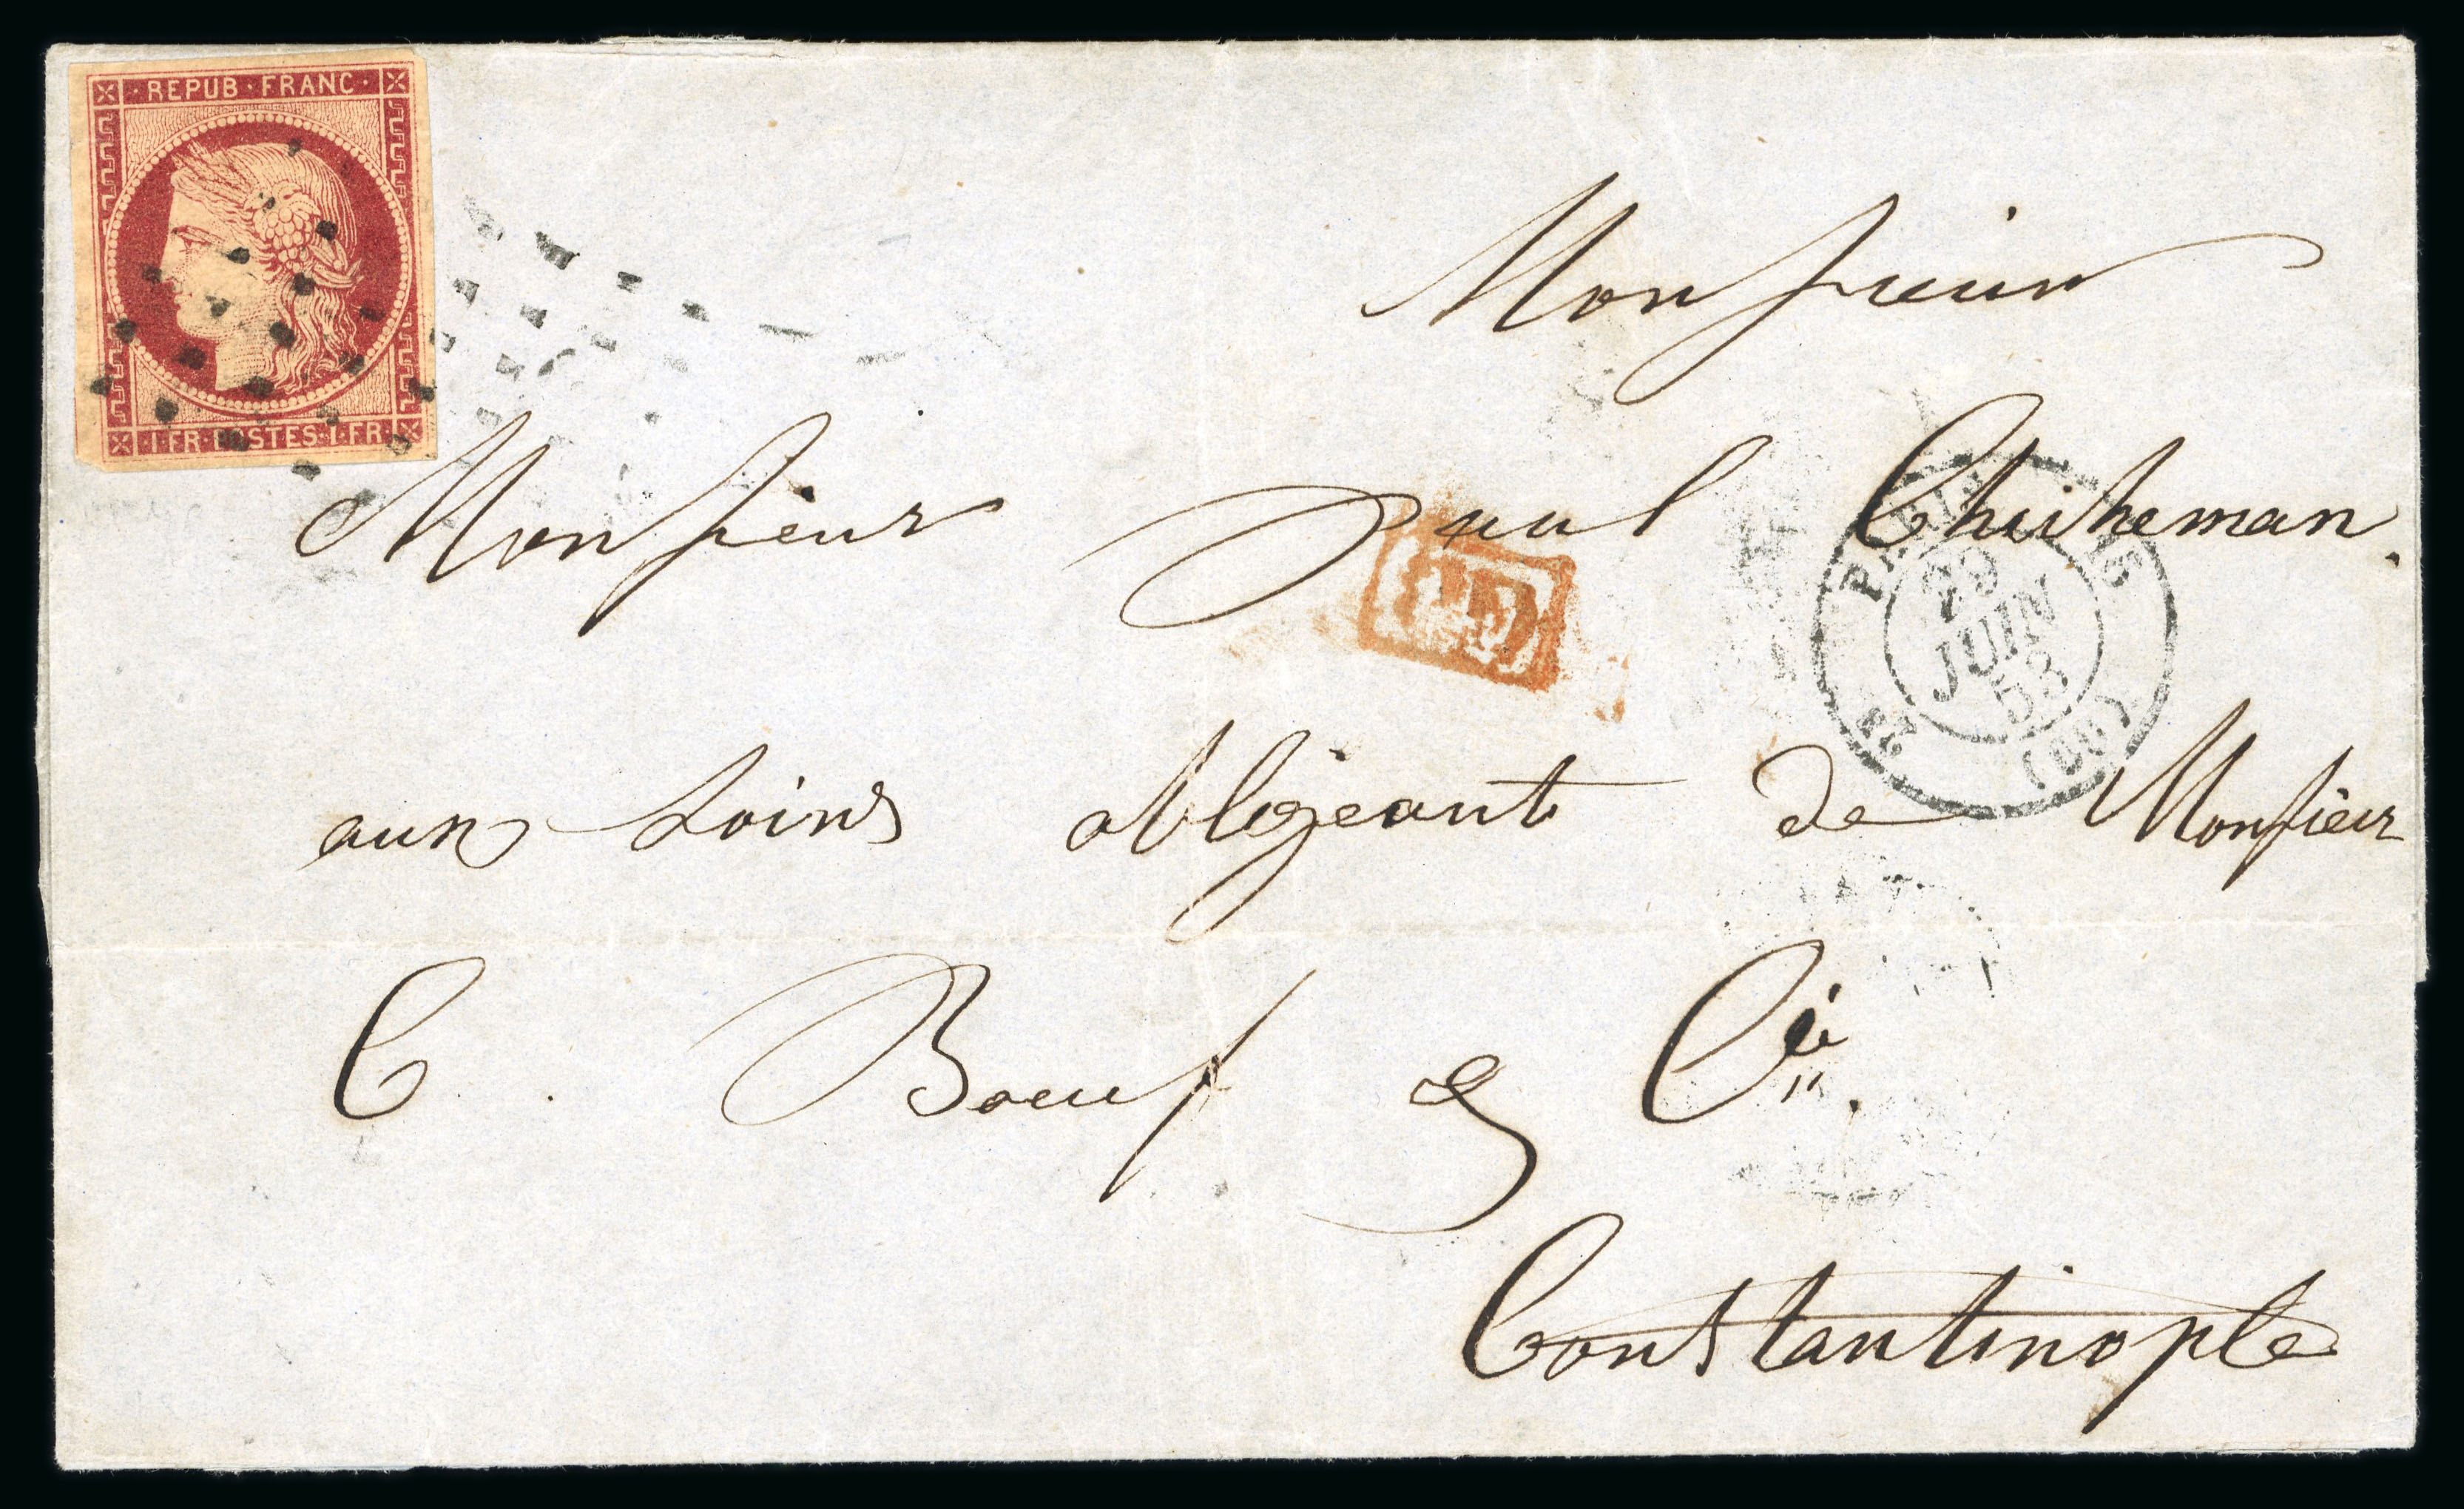 REPUB · FRANC ·
1 · FR · POSTES · 1 · FR
Monsieur
Monsieur Paul
PD
PARIS
29
JUIN
53
(60)
aux soins obligeant de Monsieur
C. Boeuf & Cie.
Constantinople